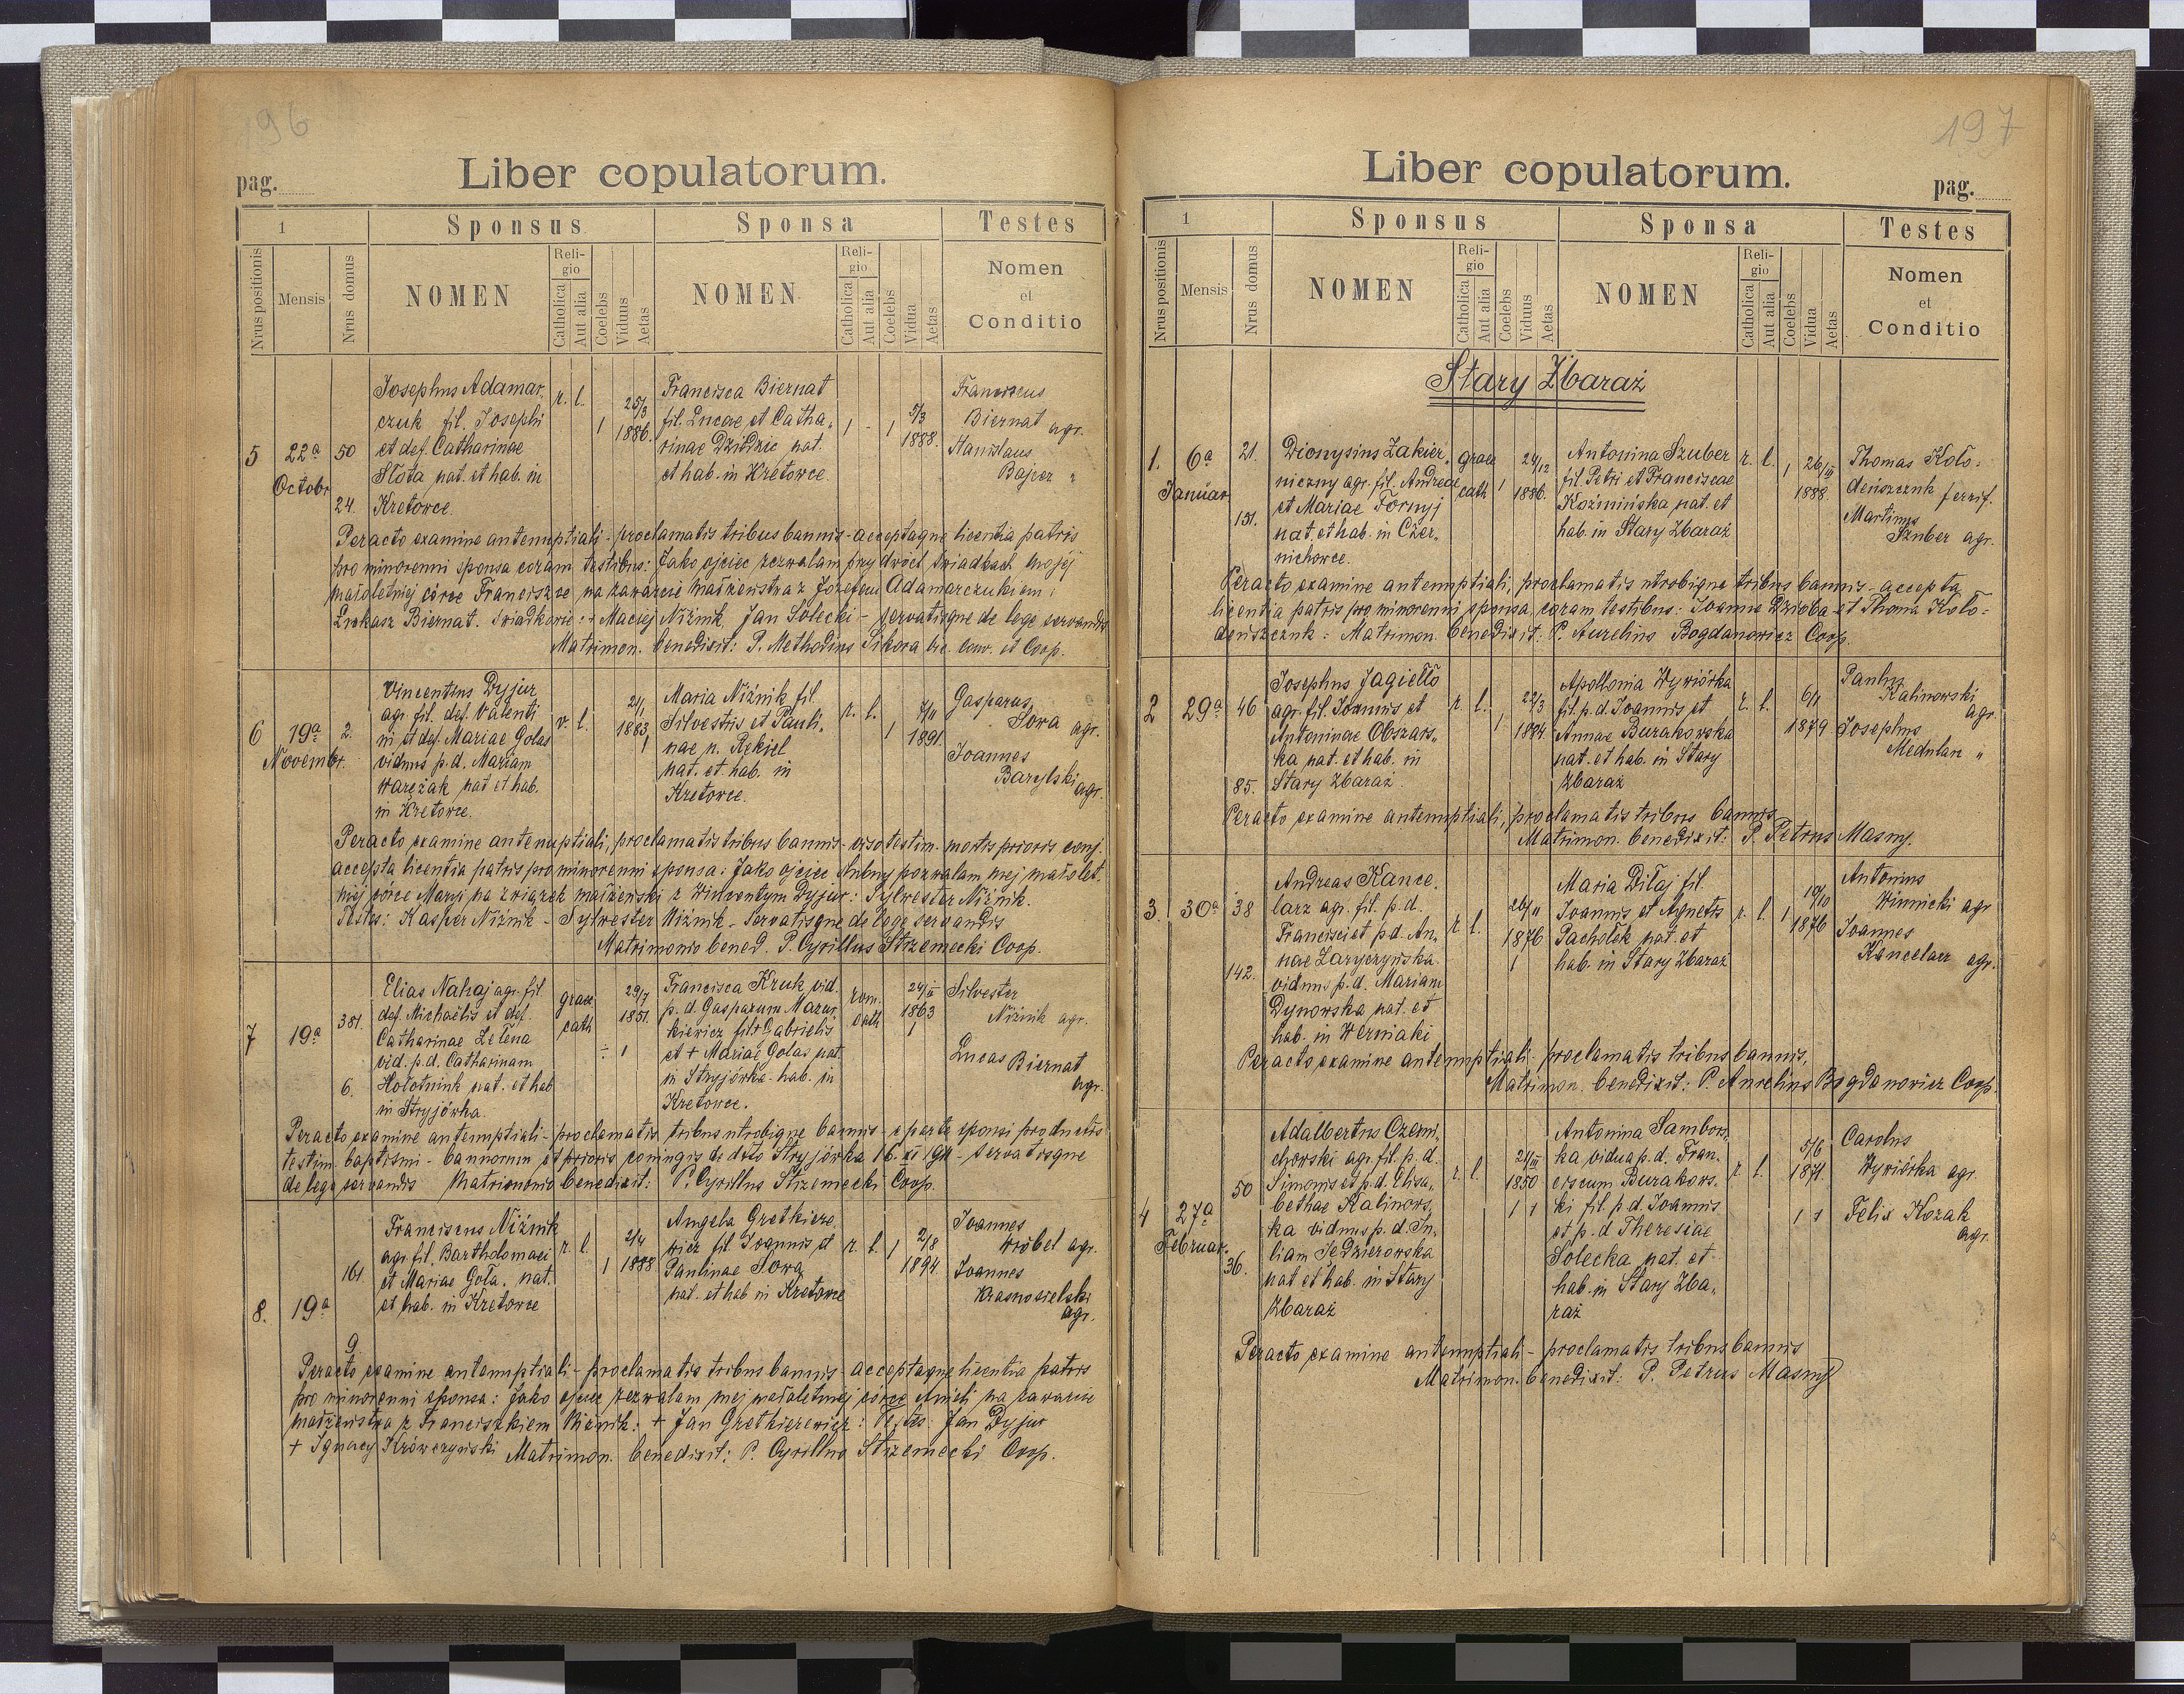 96
Liber copulatorum.
pag.
1
Sponsus
Sponsa
Testes
Nrus positionis
Mensis
Nrus domus
NOMEN
Religio
Catholica
Aut alia
Coelebs
Viduus
Aetas
NOMEN
Religio
Catholica
Aut alia
Coelebs
Vidua
Aetas
Nomen
et
Conditio
5
22a
Octobr
50
24.
Josephus Adamar„
czuk fil. Josephi
et def. Catharinae
Słota nat. et hab. in
Kretowce.
r. l.
1
25/3
1886.
Francisca Biernat
fil. Lucae et Catha„
rinae Dzidzic nat.
et hab. in Kretowce.
1 - 1
5/3
1888.
Franciscus
Biernat agr.
Stanislaus
Bajcer "
Peracto examine antenuptiali - proclamatis tribus bannis - acceptaque licentia patris
pro minorenni sponsa coram testibus: Jako ojciec zezwalam przy dwóch świadkach mojej
małoletniej córce Franciszce na zawarcie małżeństwa z Józefem Adamarczukiem:
Łukasz Biernat. Świadkowie: + Maciej Niżnik, Jan Solecki - servatisque de lege servandis
Matrimon. benedixit: P. Methodius Sikora vic. conv. et Coop.
6
19a
Novembr.
2.
Vincentius Dyjur
agr. fil. def. Valenti
ni et def. Mariae Golas
viduus p. d. Mariam
Warężak nat et hab.
in Kretowce.
r. l.
21/1
1883
1
Maria Niżnik fil.
Silvestris et Pauli„
nae n. Rekiel
nat. et hab. in
Kretowce.
r. l.
1
7/11
1891.
Gasparus
Sowa agr.
Joannes
Barylski agr.
Peracto examine antenuptiali, proclamatis tribus bannis - viso testim. mortis prioris conj.
accepta licentia patris pro minorenni sponsa: Jako ojciec ślubny pozwalam mej małolet.
niej córce Maryi na związek małżeński z Wincentym Dyjur: Sylwester Niżnik.
Testes: Kasper Niżnik - Sylwester Niżnik - Servatisque de lege servandis
Matrimonio bened. P. Cyrillus Strzemecki Coop.
7
19a
381.
6.
Elias Nahaj agr. fil.
def. Michaëlis et def.
Catharinae Zelena
vid. p. d. Catharinam
Hołotniuk nat. et hab
in Stryjówka.
graec
cath
÷ 1
29/7
1851.
Francisca Kruk vid.
p. d. Gasparum Mazur
kiewicz fil + Gabrielis
et + Mariae Golas nat.
in Stryjówka. hab. in
Kretowce.
rom.
cath
24/II
1863
1
Silvester
Niżnik agr.
Lucas Biernat
agr.
Peracto examine antenuptiali - proclamatis tribus utrobique bannis - e parte sponsi productis
testim. baptismi - bannorum et prioris coniugis de dtto Stryjówka 16. XI 1911 - servatisque
de lege servandis Matrimonio benedixit: P. Cyrillus Strzemecki Coop.
8.
19a
161.
9
Franciscus Niżnik
agr. fil. Bartholomaei
et Mariae Goła. nat.
et hab. in Kretowce
r. l.
1
2/4
1888
Angela Gretkiere
wicz fil Joannis et
Paulinae Sowa
nat. et hab in Kretowce
r. l. 1
2/8
1894.
Joannes
Wróbel agr.
Joannes
Krasnosielski
agr.
Peracto examine antenuptiali - proclamatis tribus bannis - acceptaque licentia patris
pro minorenni sponsa: Jako ojciec zezwalam mej małoletniej córce Anieli na zawarcie
małżeństwa z Franciszkiem Niżnik: + Jan Gretkierewicz: Testes: Jan Dyjur
+ Ignacy Krówczyński Matrimon. benedixit: P. Cyrillus Strzemecki Coop.
197
Liber copulatorum.
pag.
1
Sponsus
Sponsa
Testes
Nrus positionis
Mensis
Nrus domus
NOMEN
Religio
Catholica
Aut alia
Coelebs
Viduus
Aetas
NOMEN
Religio
Catholica
Aut alia
Coelebs
Vidua
Aetas
Nomen
et
Conditio
Stary Zbaraż
1.
6a
Januar
21.
131.
Dionysius Zakier„
niczny agr. fil. Andreae
et Mariae Fornyj
nat. et hab. in Czer„
nichowce.
graec
cath 1
24/12
1886.
Antonina Szuber
fil. Petri et Franciscae
Koźmińska nat. et
hab. in Stary Zbaraż
r. l. 1
26/III
1888.
Thomas Koło-
deńszczuk ferrif.
Martinus
Szuber agr.
Peracto examine antenuptiali, proclamatis utrobique tribus bannis - accepta
licentia patris pro minorenni sponsa, coram testibus: Joanne Dzioba et Thoma Koło-
deńszczuk: Matrimon. benedixit: P. Aurelius Bogdanowicz Coop.
2
29a
46
85.
Josephus Jagiełło
agr. fil. Joannis et
Antoninae Obszars„
ka nat. et hab. in
Stary Zbaraż.
r. l.
1
22/3
1884
Apollonia Wywiórka
fil. p. d. Joannis et
Annae Burakowska
nat. et hab. in Stary
Zbaraż
r. l.
1
6/1
1879
Paulus
Kalinowski
agr.
Josephus
Medulan "
Peracto examine antenuptiali, proclamatis tribus bannis
Matrimon. benedixit: P. Petrus Masny.
3.
30a
38
142.
Andreas Kance„
larz agr. fil. p. d.
Francisci et p. d. An„
nae Zaryczyńska
viduus p. d. Mariam
Dynowska nat. et
hab. in Werniaki
r. l.
26/11
1876
1
Maria Diłaj fil.
Joannis et Agnetis
Pachołek nat. et
hab. in Stary Zbaraż
r. l. 1
10/10
1876
Antonius
Winnicki agr
Joannes
Kancelarz agr.
Peracto examine antenuptiali. proclamatis tribus bannis,
Matrimon. benedixit: P. Aurelius Bogdanowicz Coop.
4
27a
Februar.
50
36.
Adalbertus Czerni„
chowski agr. fil. p. d.
Simonis et p. d. Elisa„
bethae Kalinows„
ka viduus p. d. Ju„
liam Jedzierowska
nat et hab. in Stary
Zbaraż
r. l.
24/III
1850
1 1
Antonina Sambors„
ka vidua p. d. Fran„
ciscum Burakows„
ki fil. p. d. Joannis
et p. d Theresiae
Solecka nat. et
hab. in Stary Zba„
raż
r. l.
5/6
1871.
1 1
Carolus
Wywiórka agr.
Felix Kozak
agr.
Peracto examine antenuptiali - proclamatis tribus bannis
Matrimon. benedixit: P. Petrus Masny